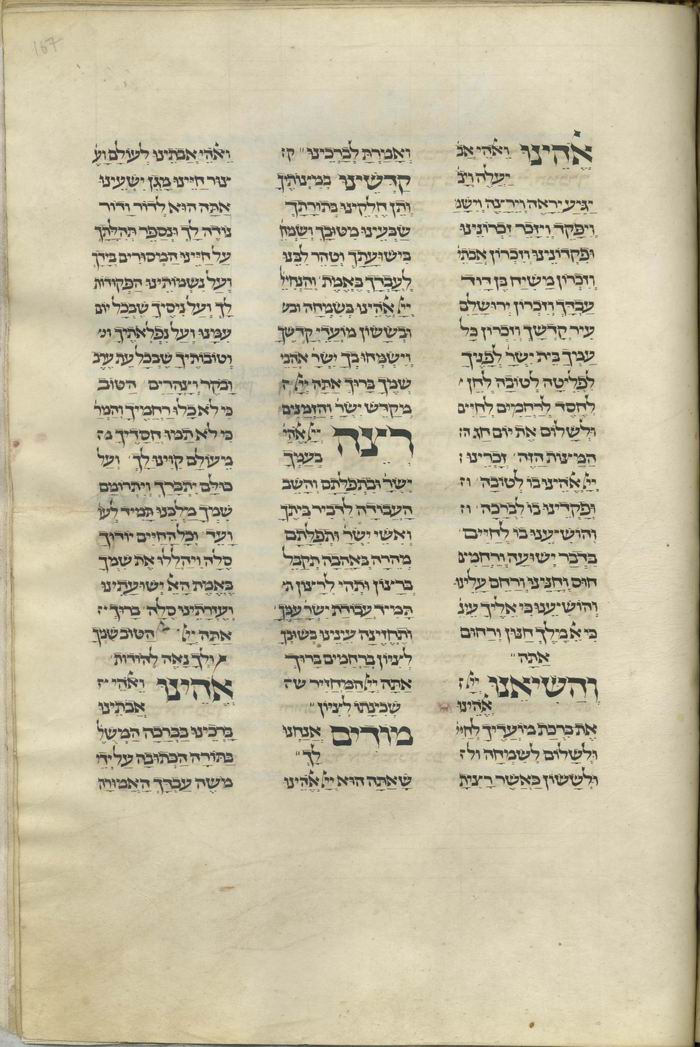 אלהינו ואלהי אב
יעלה ויב
יגיע יראה וירצה וישמ
ויפקד ויזכר זכרונינו
ופקדונינו וזכרון אבתי
וזכרון משיח בן דוד
עבדך וזכרון ירושלם
עיר קדשך וזכרון כל
עמך בית ישר לפניך
לפליטה לטובה לחן
לחסד לרחמים לחיים
ולשלום את יום חג ה
המצות הזה זכרינו
אלהינו בו לטובה
ופקדינו בו לברכה
והושיענו בו לחיים
בדבר ישועה ורחמים
חוס וחנינו ורחם עלינו
והושיענו כי אליך עינ
כי אל מלך חנון ורחום
אתה
והשיאנו
אלהינו
את ברכת מועדיך לחיי
ולשלום לשמחה ול
ולששון כאשר רצית
ואמרת לברכינו
קדשינו במצותיך
ותן חלקינו בתורתך
שבעינו מטובך ושמח
בישועתך וטהר לבנו
לעבדך באמת והנחיל
אלהינו בשמחה וב
ובששון מועדי קדשך
וישמחו בך ישר אהבי
שמך ברוך אתה
מקדש ישר והזמנים
רצה אלהי
בעמך
ישר ובתפלתם והשב
העבודה לדביר ביתך
ואשי ישר ותפלתם
מהרה באהבה תקבל
ברצון ותהי לרצון
תמיד עבודת ישר עמך
ותחזינה עינינו בשובך
לציון ברחמים ברוך
אתה המחזיר ש
שכינתו לציון
מודים אנחנו
לך
שאתה הוא אלהינו
ואלהי אבתינו לעולם וע
צור חיינו מגן ישעינו
אתה הוא לדור ודור
נודה לך ונספר תהלתך
על חיינו המסורים בידך
ועל נשמותינו הפקודות
לך ועל ניסיך שבכל יום
עמנו ועל נפלאותיך
וטובותיך שבכל עת ערב
ובקר וצהרים הטוב
כי לא כלו רחמיך והמר
כי לא תמו חסדיך
מעולם קוינו לך ועל
כולם יתברך ויתרומם
שמך מלכנו תמיד לעו
ועד וכל החיים יודוך
סלה ויהללו את שמך
באמת האל ישועתינו
ועזרתינו סלה ברוך
אתה הטוב שמך
ולך נאה להודות
אלהינו ואלהי
אבתינו
ברכינו בברכה המשל
בתורה הכתובה על ידי
משה עבדך האמורה